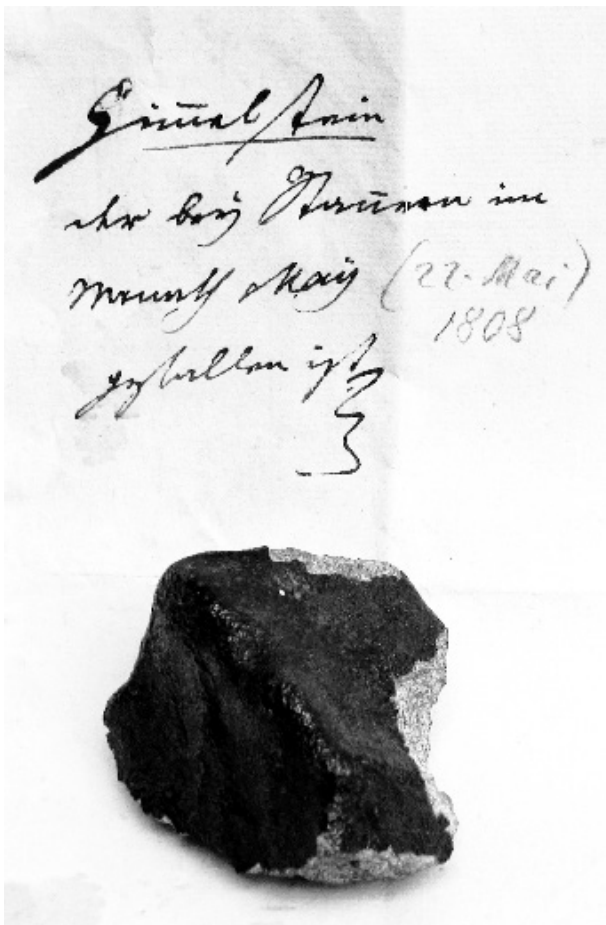 Him̅elstein
der beÿ Stan̅ern im
Monath Maÿ (22. Mai)
1808
gefallen ist